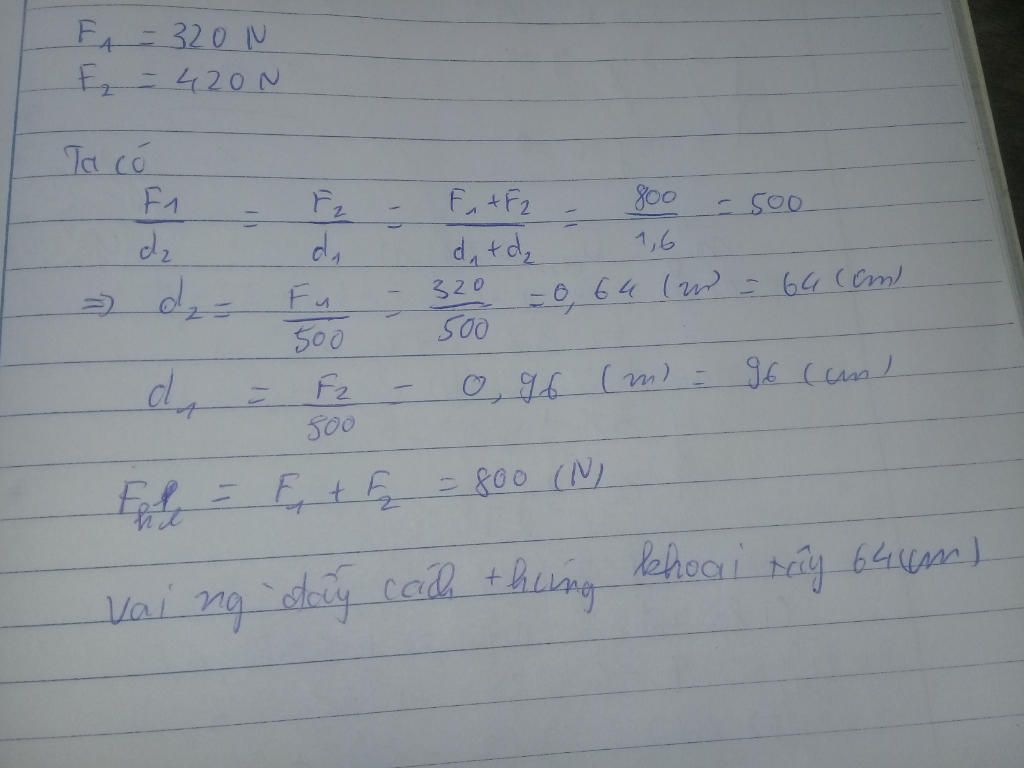 F₁ = 320 N
F₂ = 420 N
Ta có
F1/d₂ = F₂/d₁ = F₁+F₂/d₁+d₂ = 800/1,6 = 500
=> d₂ = F₁/500 = 320/500 = 0,64 (m) = 64 (cm)
d₁ = F₂/500 = 0,96 (m) = 96 (cm)
F hl = F₁ + F₂ = 800 (N)
Vai ng đấy cách thúng khoai tây 64(cm)